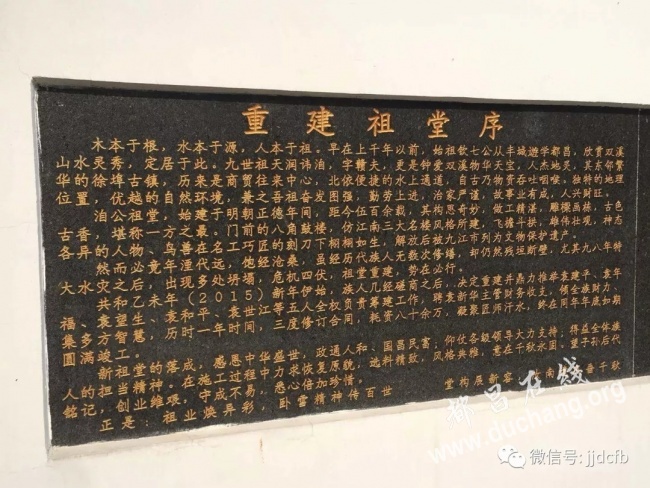 重建祖堂序
木本于根，水本于源，人本于祖。早在上千年以前，始祖软七公从丰城游学都昌，欣赏双溪
山水灵秀，定居于此。九世祖天润讳泊，字赟夫，更是钟爱双溪物华天宝，人杰地灵，其东邻繁
华的徐埠古镇，历来是商贸往来中心，北依便捷的水上通道，自古乃物资吞吐咽喉，独特的地理
位置，优越的自然环境，兼之吾祖奋发图强，勤劳上进，治家严谨，故事业有成，人兴财旺。
泊公祖堂，始建于明朝正德年间，距今五百余载，其构思奇妙，做工精湛，雕梁画栋，古色
古香，堪称一方之最。门前的八角鼓楼，仿江南三大名楼风格所建，飞檐斗拱，雄伟壮观，神态
各异的人物、鸟兽在名工巧匠的刻刀下栩栩如生。解放后被九江市列为文物保护遗产。
然而必竟年湮代远，他经沧桑，虽经历代族人无数次修缮，却仍然残垣断壁，尤其九八年特
大水灾之后，出现多处坍塌，危机四伏，祖堂重建，势在必行。
共和乙未年（2015）新年伊始，族人几经磋商之后，决定重建并鼎力推举袁建平、袁年
福、袁望生、袁和平、袁世江等五人全权负责筹建工作，聘袁新华主管财务收支。倾全族财力、
集多方智慧，历时一年时间，三度修订合同，耗资八十余万，凝聚匠师汗水，终在同年年底如期
圆满竣工。
新祖堂的落成，感恩中华盛世，政通人和、国昌民富；仰仗各级领导大力支持；得益全体族
人的担当精神。在施工过程中力求恢复原貌，选料精致，风格典雅，意在千秋永固。望子孙后代
铭记，创业维艰，守成不易，尽心倍加珍惜。
正是：祖业焕异彩，卧雪精神传百世
堂构展新容，
垂千秋
都昌在线
www.duchang.com
微信号: jjdcfb